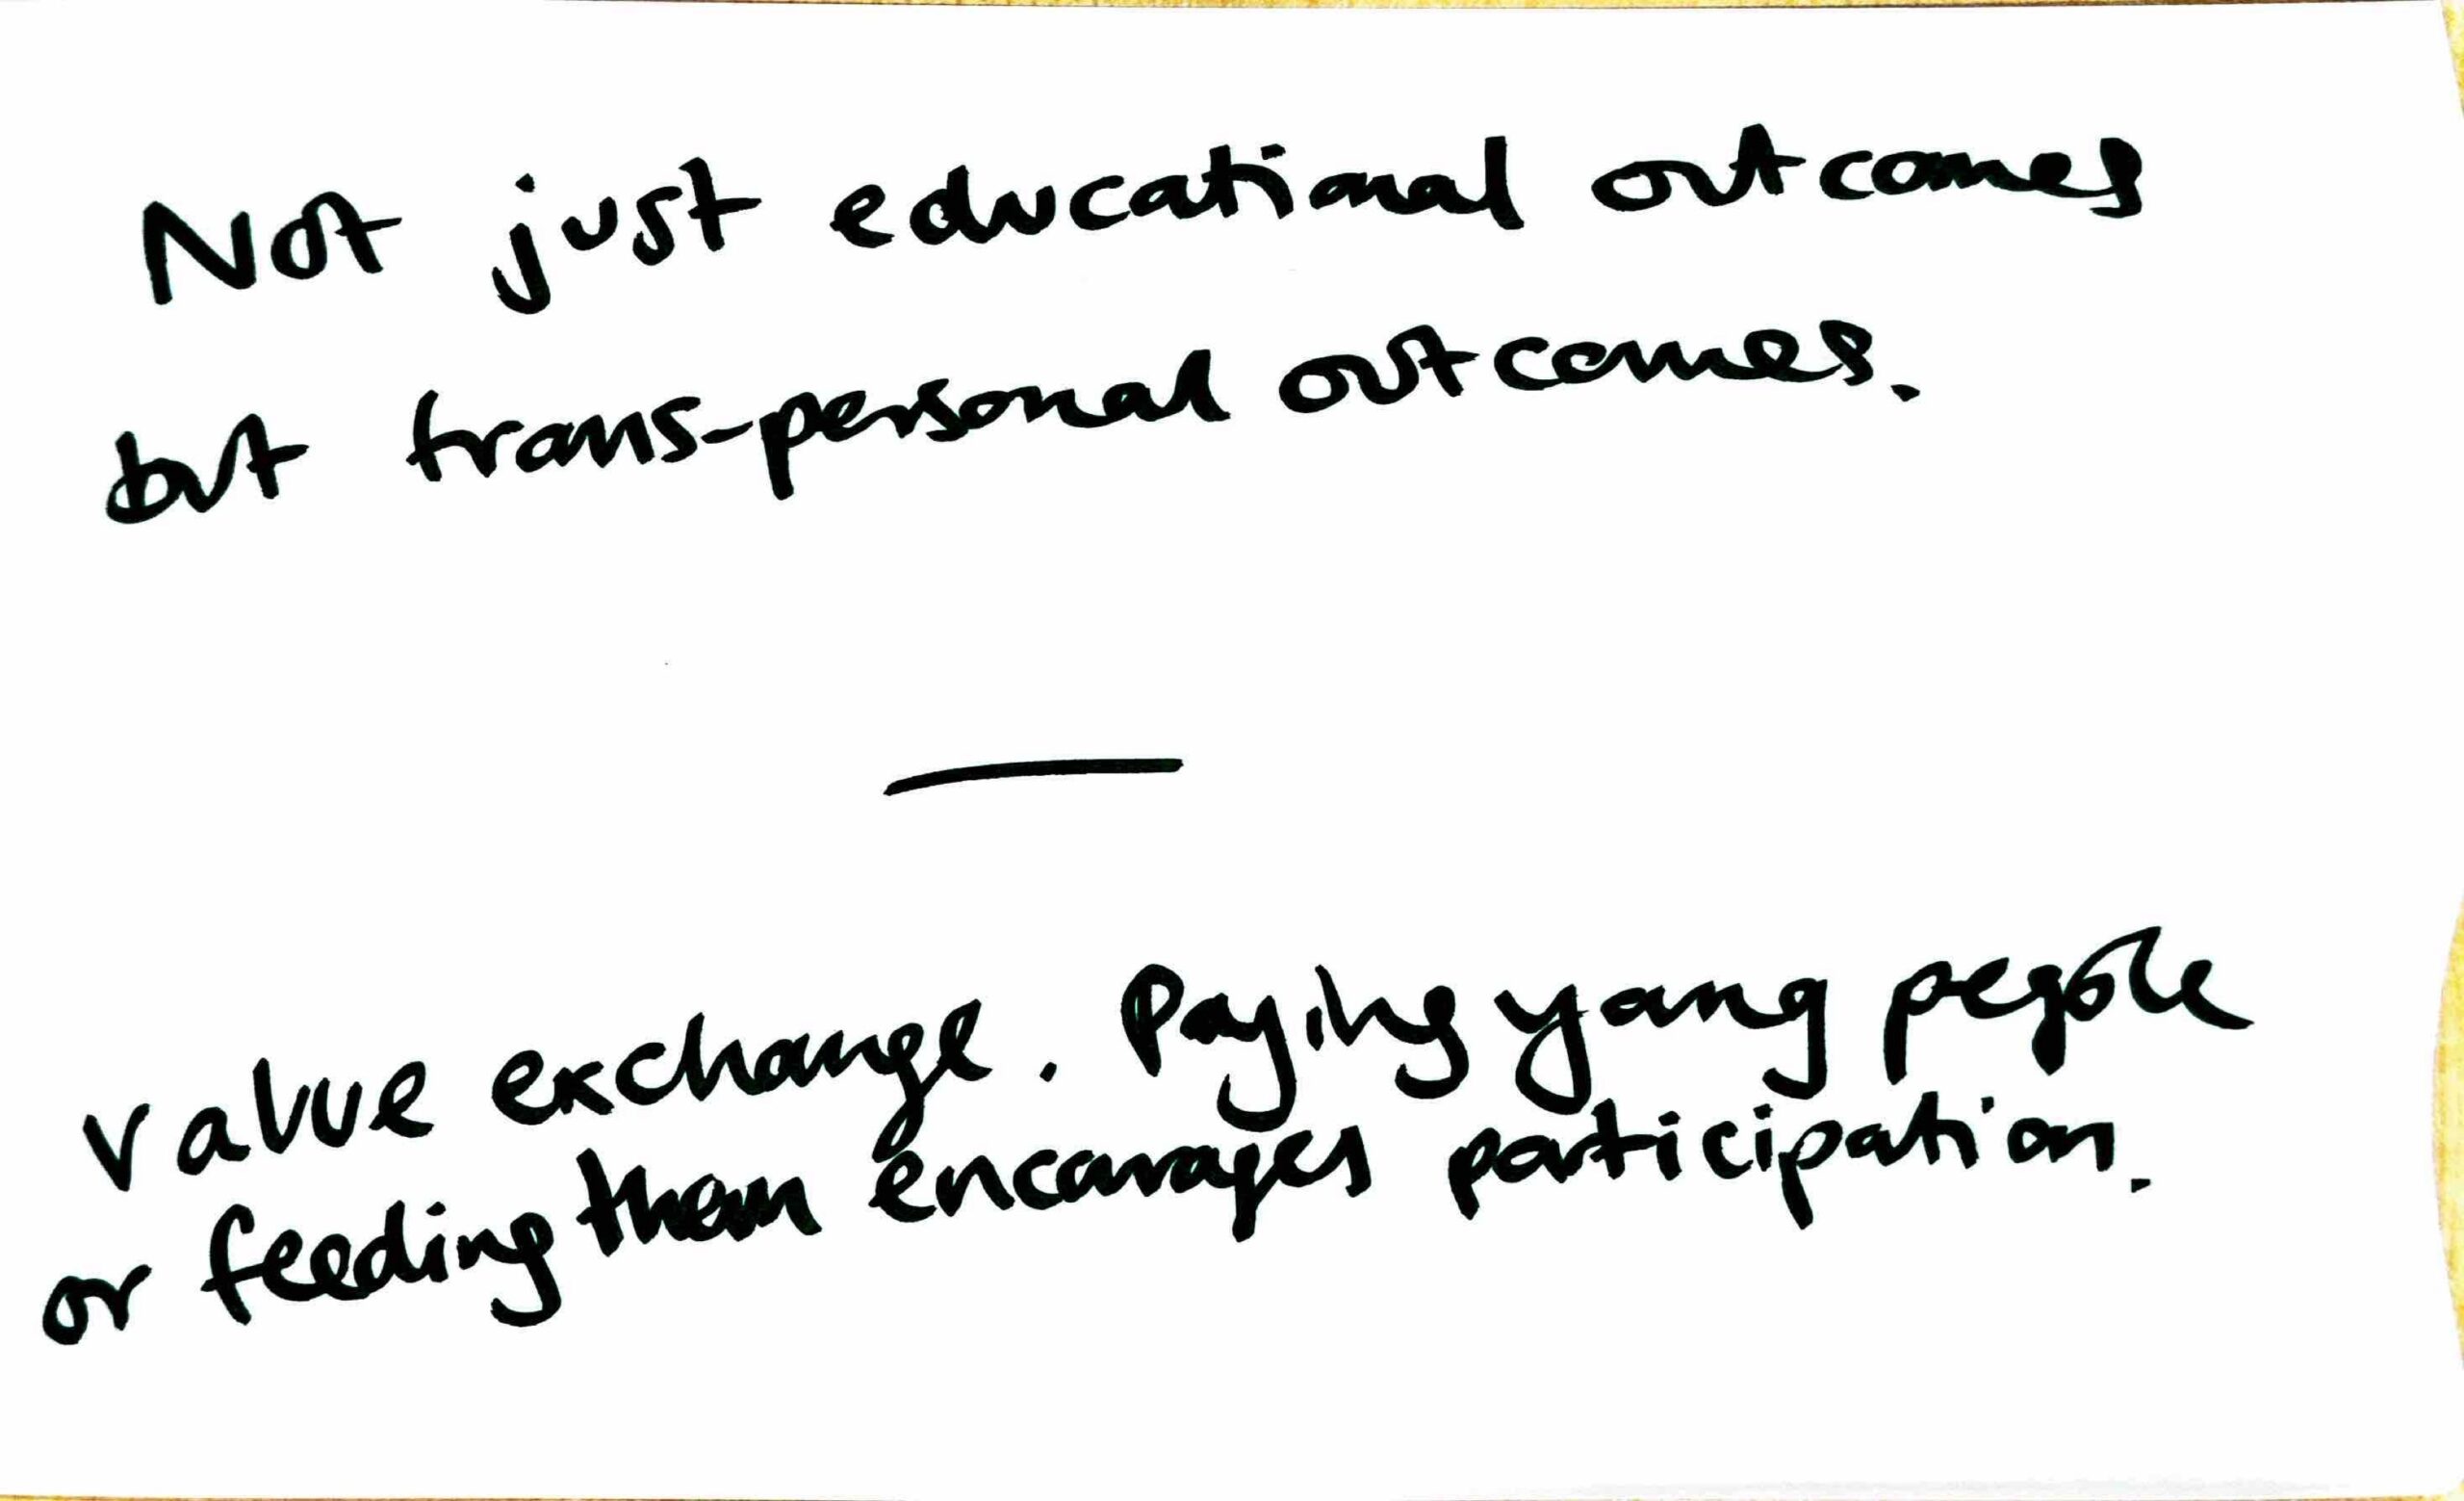 Not just educational outcomes
but trans-personal outcomes.
—
Value exchange. Paying young people
or feeding them encourages participation.